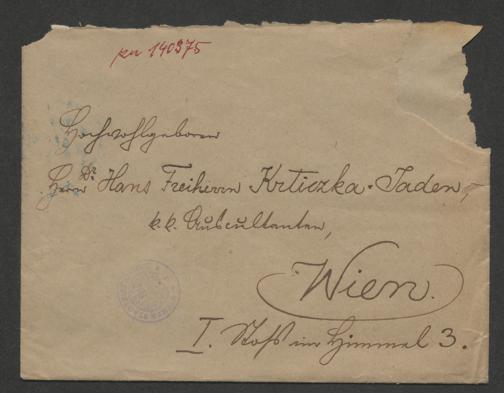 pu 140375
Hochwohlgeboren
Herrn Dr. Hans Freiherrn Krticzka-Jaden,
k. k. Auscultanten,
Wien.
I. Stoß im Himmel 3.